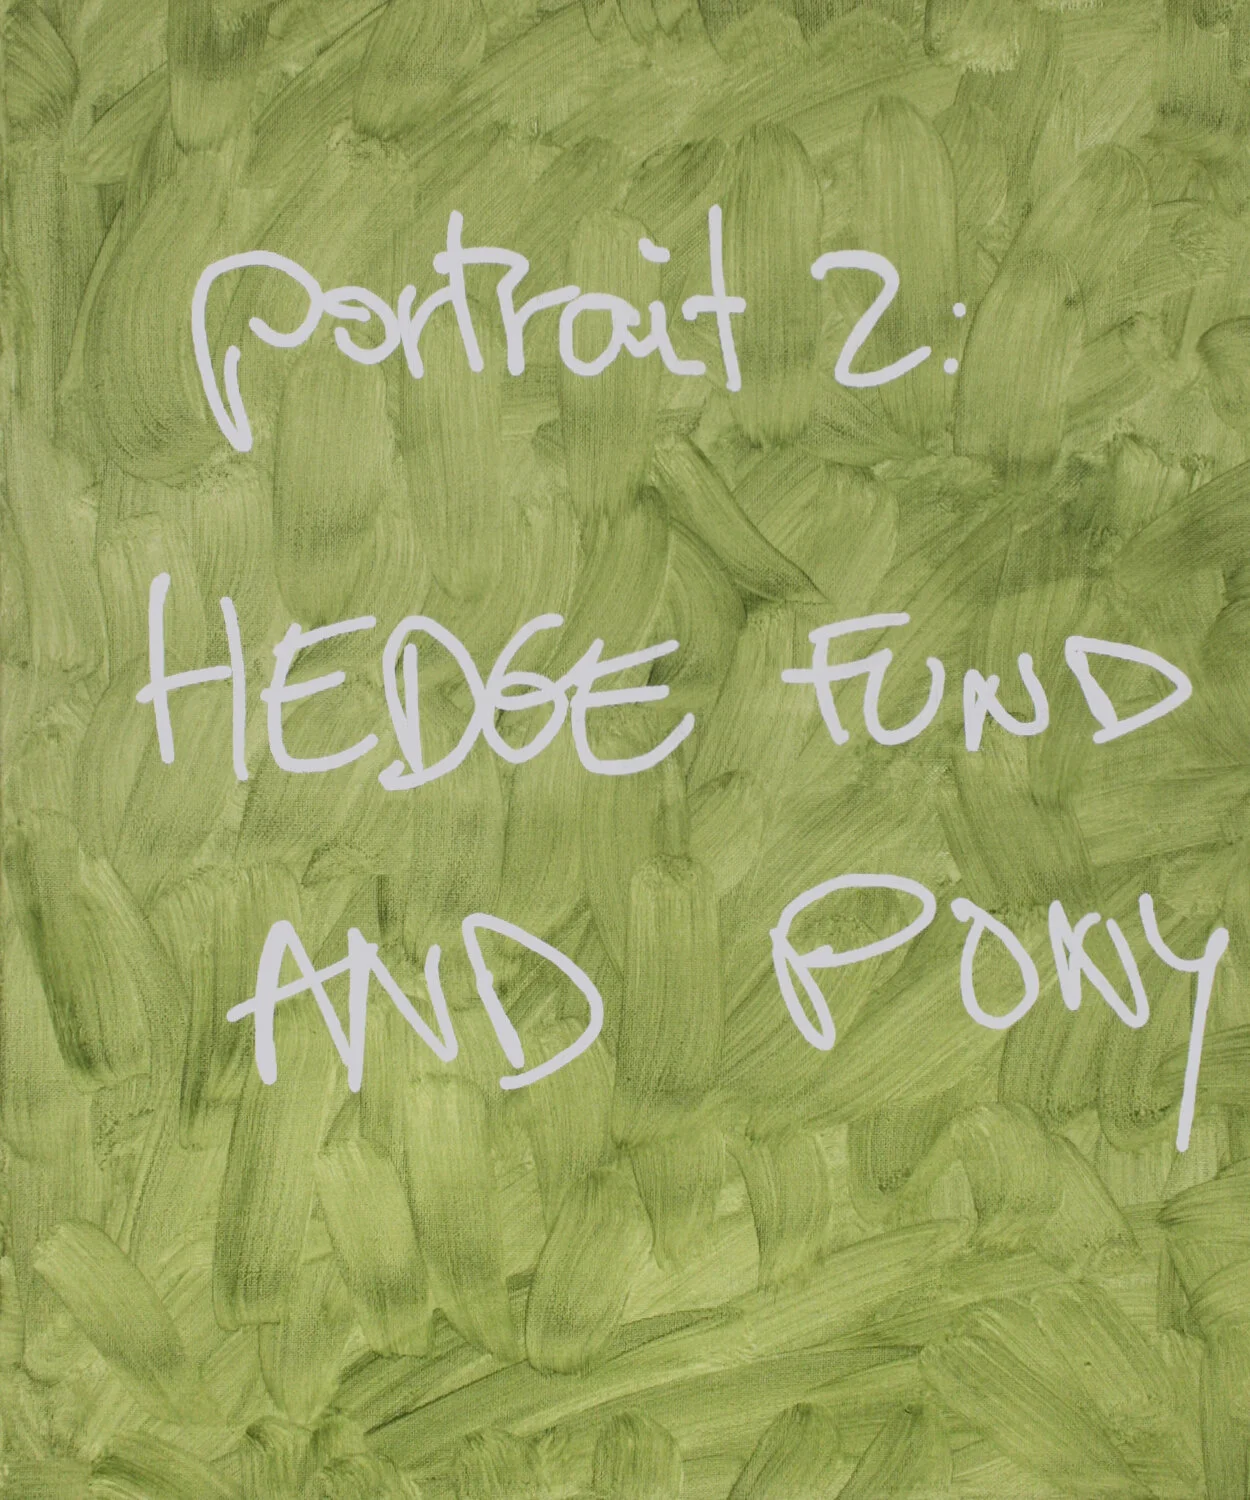 portrait 2:
HEDGE FUND
AND PONY